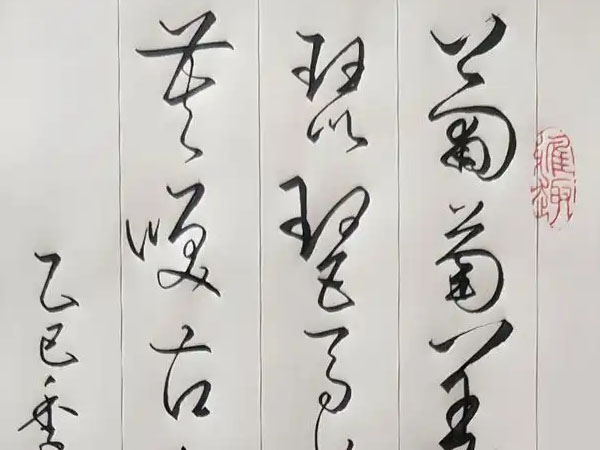 雅趣
葡萄美
琵琶马
莫笑古
乙巳季